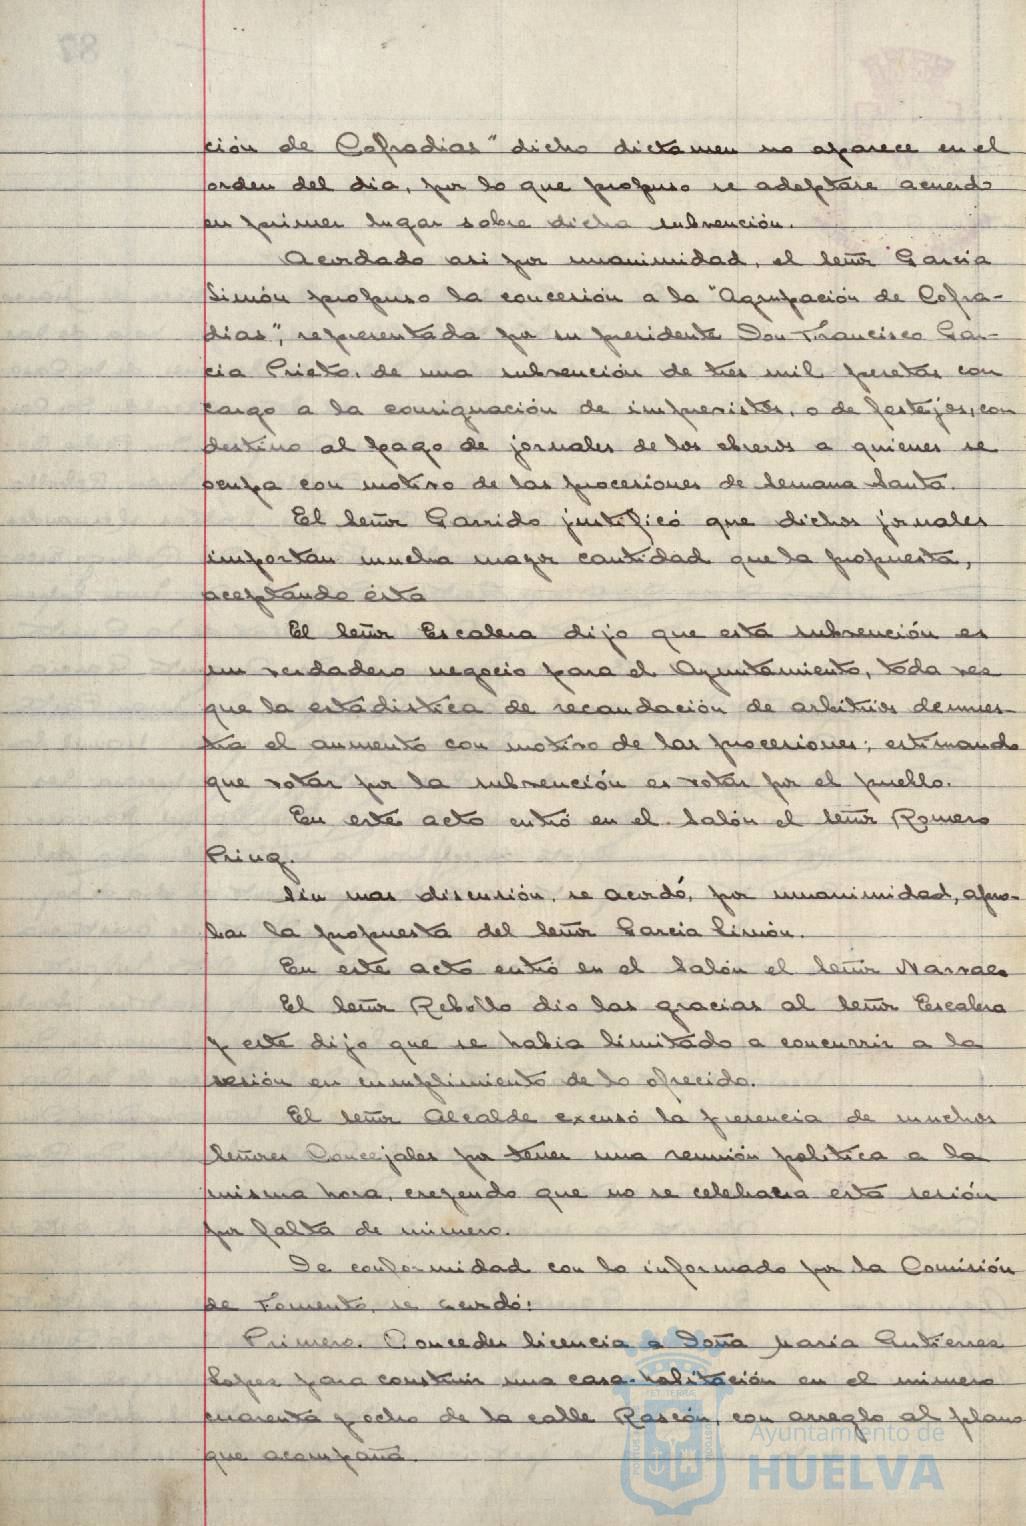 ción de Cofradias" dicho dictamen no aparece en el
orden del dia, por lo que propuso se adoptase acuerdo
en primer lugar sobre dicha subvención.
Acordado asi por unanimidad, el señor Garcia
Simón propuso la concesión a la "Agrupación de Cofra-
dias", representada por su presidente Don Francisco Gar-
cia Prieto, de una subvención de tres mil pesetas con
cargo a la consignación de imprevistos, o de festejos, con
destino al pago de jornales de los obreros a quienes se
ocupa con motivo de las procesiones de Semana Santa.
El señor Garrido justificó que dichos jornales
importan mucha mayor cantidad que la propuesta,
aceptando ésta
El señor Escalera dijo que esta subvención es
un verdadero negocio para el Ayuntamiento, toda vez
que la estadistica de recaudación de arbitrios demues-
tra el aumento con motivo de las procesiones; estimando
que votar por la subvención es votar por el pueblo.
En este acto entró en el Salón el señor Romero
Princ.
Sin mas discusión, se acordó, por unanimidad, apro-
bar la propuesta del señor Garcia Simón.
En este acto entró en el Salón el señor Narvaez
El señor Rebollo dio las gracias al señor Escalera
y este dijo que se habia limitado a concurrir a la
sesión en cumplimiento de lo ofrecido.
El señor Alcalde excusó la presencia de muchos
señores Concejales por tener una reunión politica a la
misma hora, creyendo que no se celebrara esta sesión
por falta de número.
De conformidad con lo informado por la Comisión
de Fomento, se acordó:
Primero. Conceder licencia a Doña Maria Gutierrez
Lopez para construir una casa-habitación en el número
cuarenta y ocho de la calle Rascón, con arreglo al plano
que acompaña.
Ayuntamiento de
HUELVA